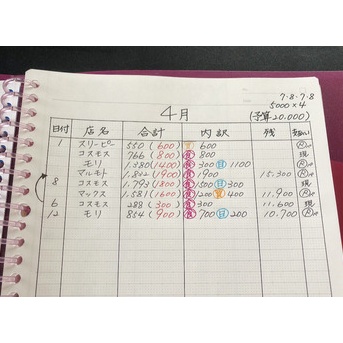 7・8・7・8
5000×4
4月 (予算20,000)
日付 店名 合計 内訳 残 支払い
1 スリーピー 550 (600) 600
コスモス 766 (800) 食 800 現
モリ 1,380 (1400) 食 300 日 1100
マルモト 1,822 (1900) 食 1900 15,300
8 コスモス 1,793 (1800) 食 1500 日 300 現
マックス 1,581 (1600) 食 1200 400 11,900
6 コスモス 288 (300) 食 300 11,600 現
12 モリ 854 (900) 食 700 日 200 10,700